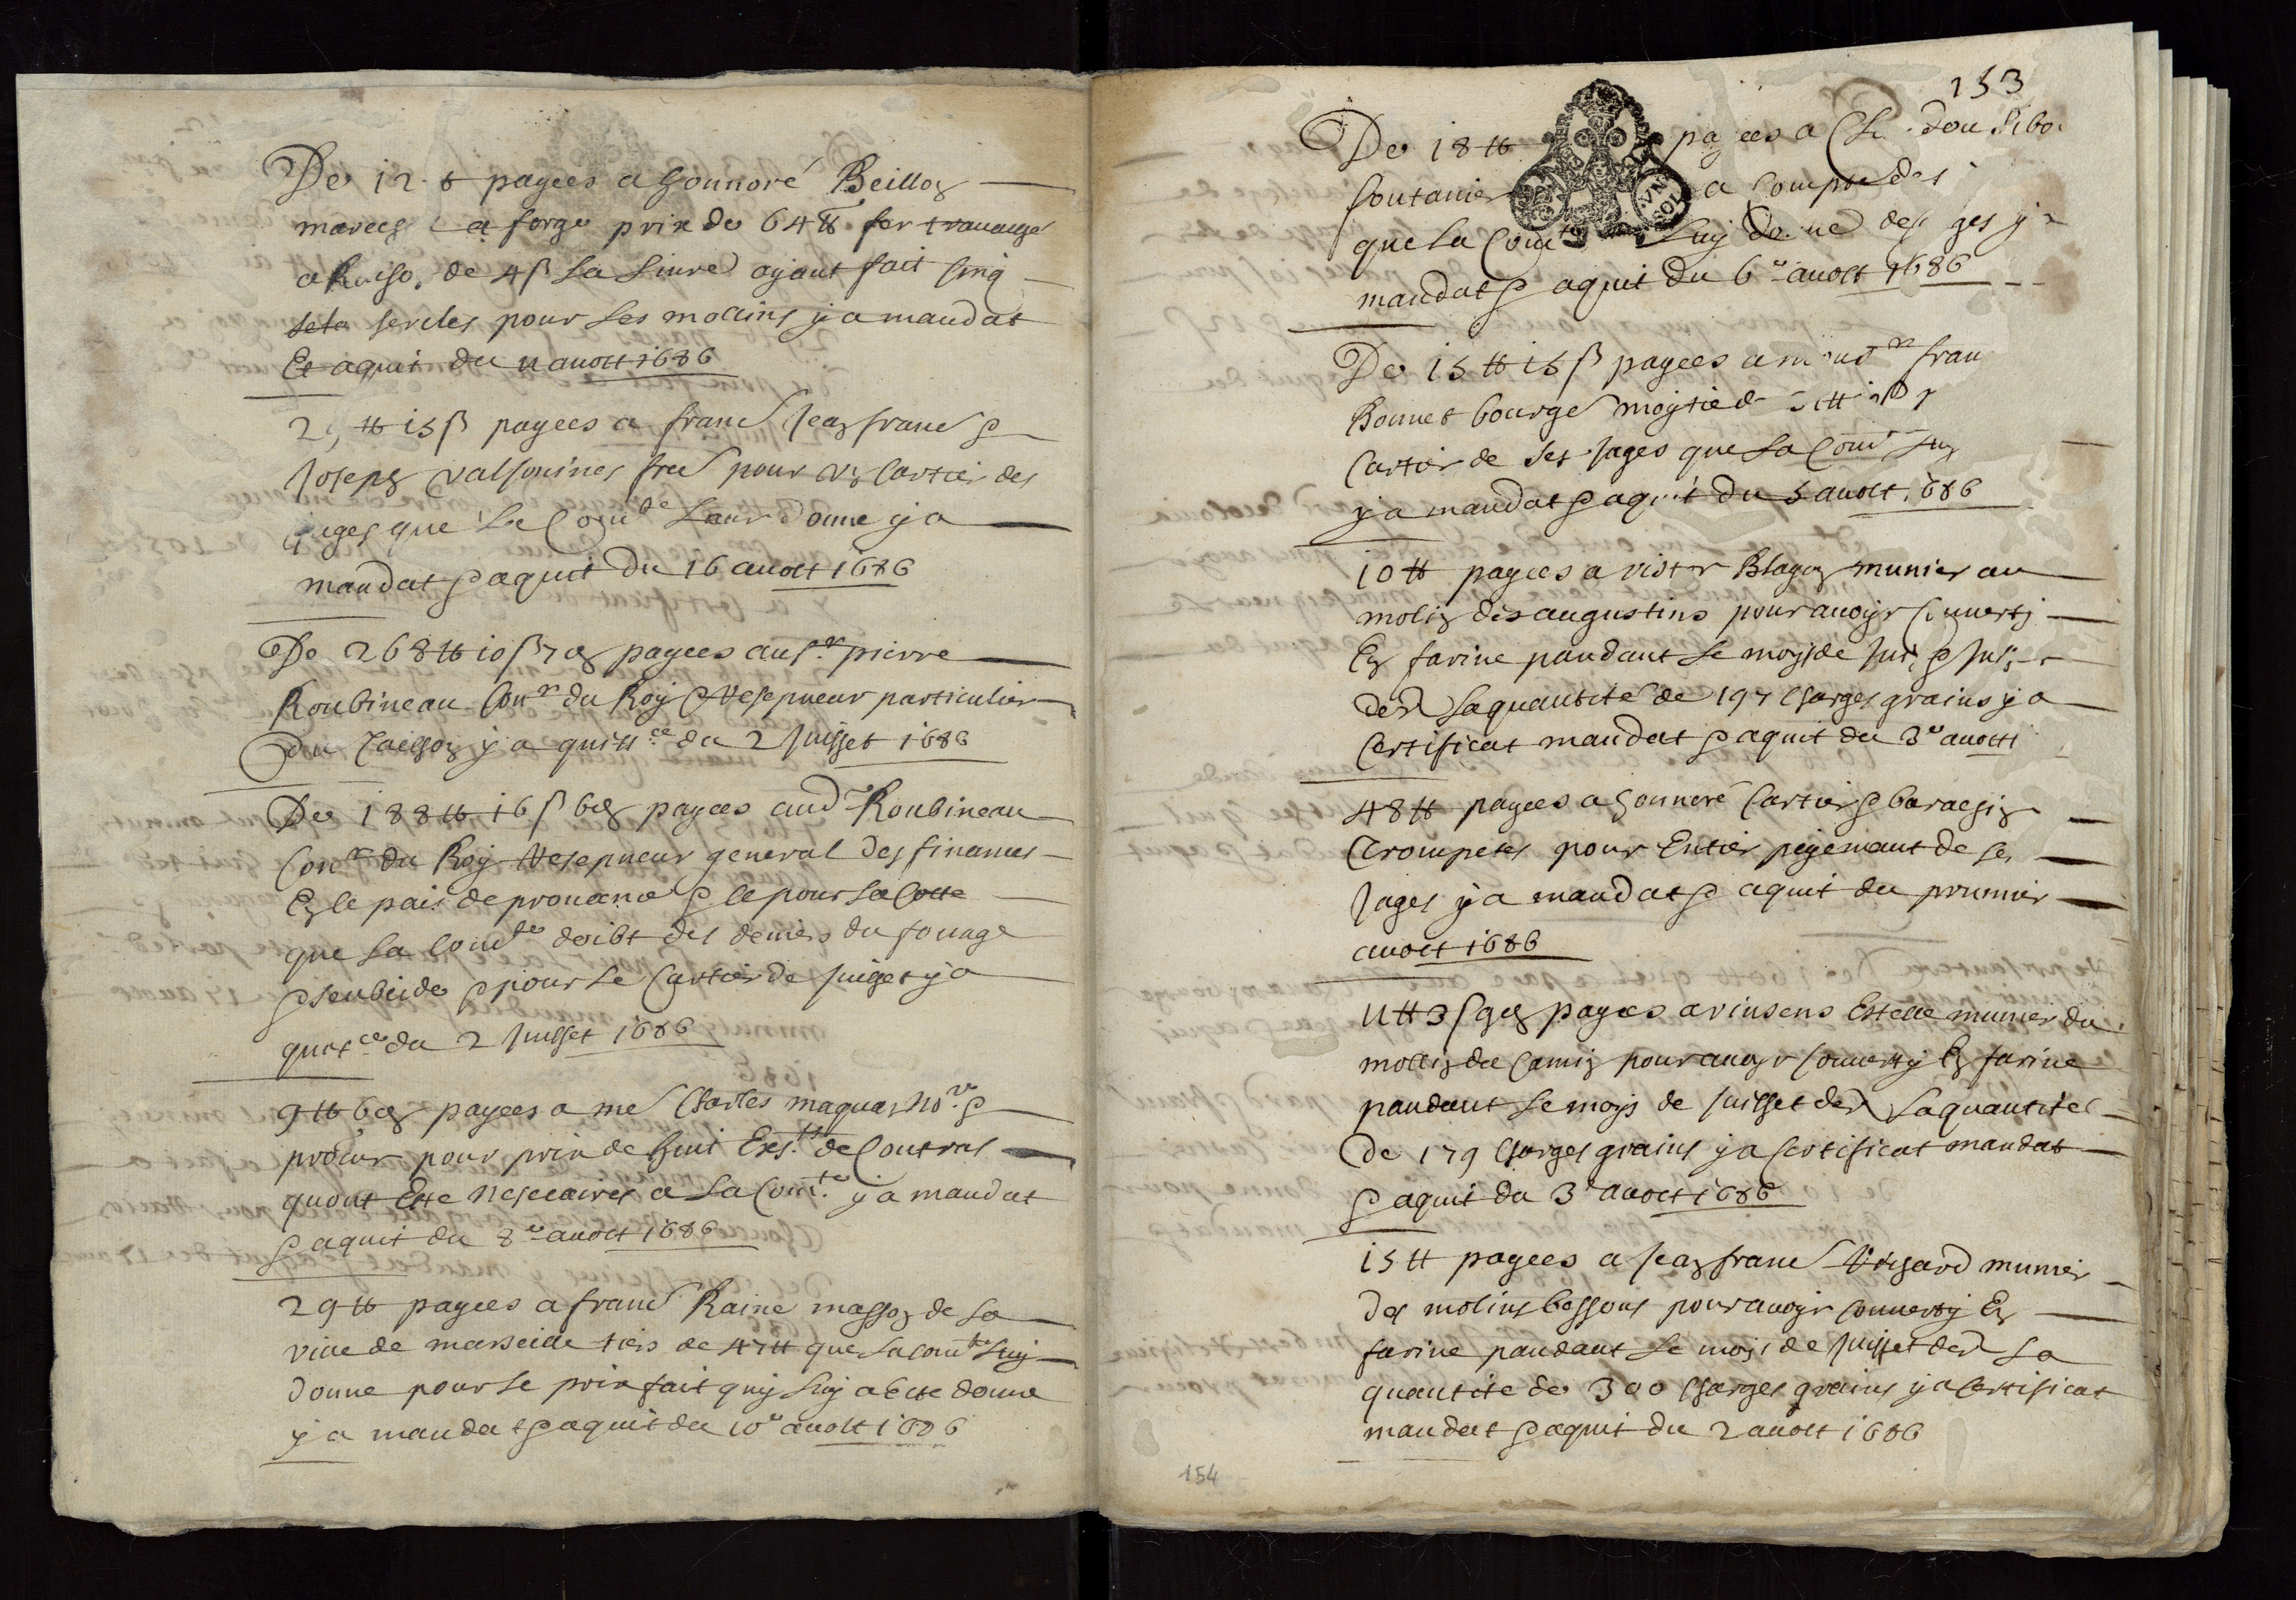 De 12 # payees a honnoré Beillon
marech a forge prix de 64 # fer
a Raiso. de 4 ß La Livre ayant fait sinq
sercles pour Les molins y a mandat
Et aquit du 11 auost 1686
# 15 ß payees a franc Jean franc &
Joseph valsonines pour un Cartier des
gages que La Comte Leur donne y a
mandat & aquit du 16 auost 1686
De 268 # 10 ß 7 d payees au sr. pierre
Roubineau Conr du Roy & Resepueur particulier
Du Tailhon y a quittce du 2 Juillet 1686
De 188 # 16 ß 6 d payees aud Roubineau
Conr du Roy Resepueur general des finances
En le pais de prouance & ce pour La Cotte
que La Comte doibt des deniers du fouage
& subside & pour Le Cartier de Juillet y a
quitce du 2 Juillet 1686
9 # 6 d payees a me Charles maquan nore &
procur pour prix de huit Exts. de Contrats
quont Este nesecaires a La Comte. y a mandat
& aquit du 8e auost 1686
29 # payees a franc Raine masson de La
ville de marseille tiers de 47 # que La Comte Luy
donne pour Le prix fait quy Luy a Este donne
y a mandat & aquit du 10e auost 1686
153
De 18 # payees a dou Libo.
fontanier a Compte des
que La Comte Luy ges y a
mandat & aquit du 6e auost 1686
De 15 # 15 ß payees a fran
Bonnet bourgs moytie d
Cartier de ses gages que La Comte Luy
y a mandat & aquit du 5 auost 1686
10 # payees a victor Blayen munier au
molin des augustins pour auoyr Conuerty
En farine pandant Le moys de &
der La quantité de 197 Charges grains y a
Certificat mandat & aquit du 3e auost
48 # payees a honnoré Cartier &
Trompetes pour Entier peyemant de Les
gages y a mandat & aquit du prumier
auost 1686
11 # 3 ß 9 d payees a vinsens Estelle munier du
mollin du Camin pour auoyr Conuerty En farine
pandant Le moys de Juillet der La quantité
De 179 Charges grains y a Certificat mandat
& aquit du 3e auost 1686
15 # payees a Jean franc munier
des molins bessons pour auoyr Conuerty En
farine pandant Le moys de Juillet der La
quantité de 300 Charges grains y a Certificat
mandat & aquit du 2 auost 1686
154